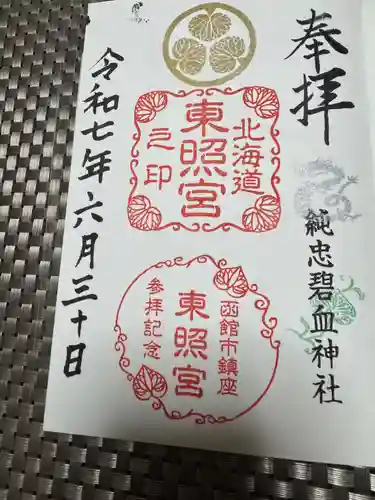 奉拝
純忠碧血神社
北海道
東照宮
之印
函館市鎮座
東照宮
参拝記念
令和七年六月三十日